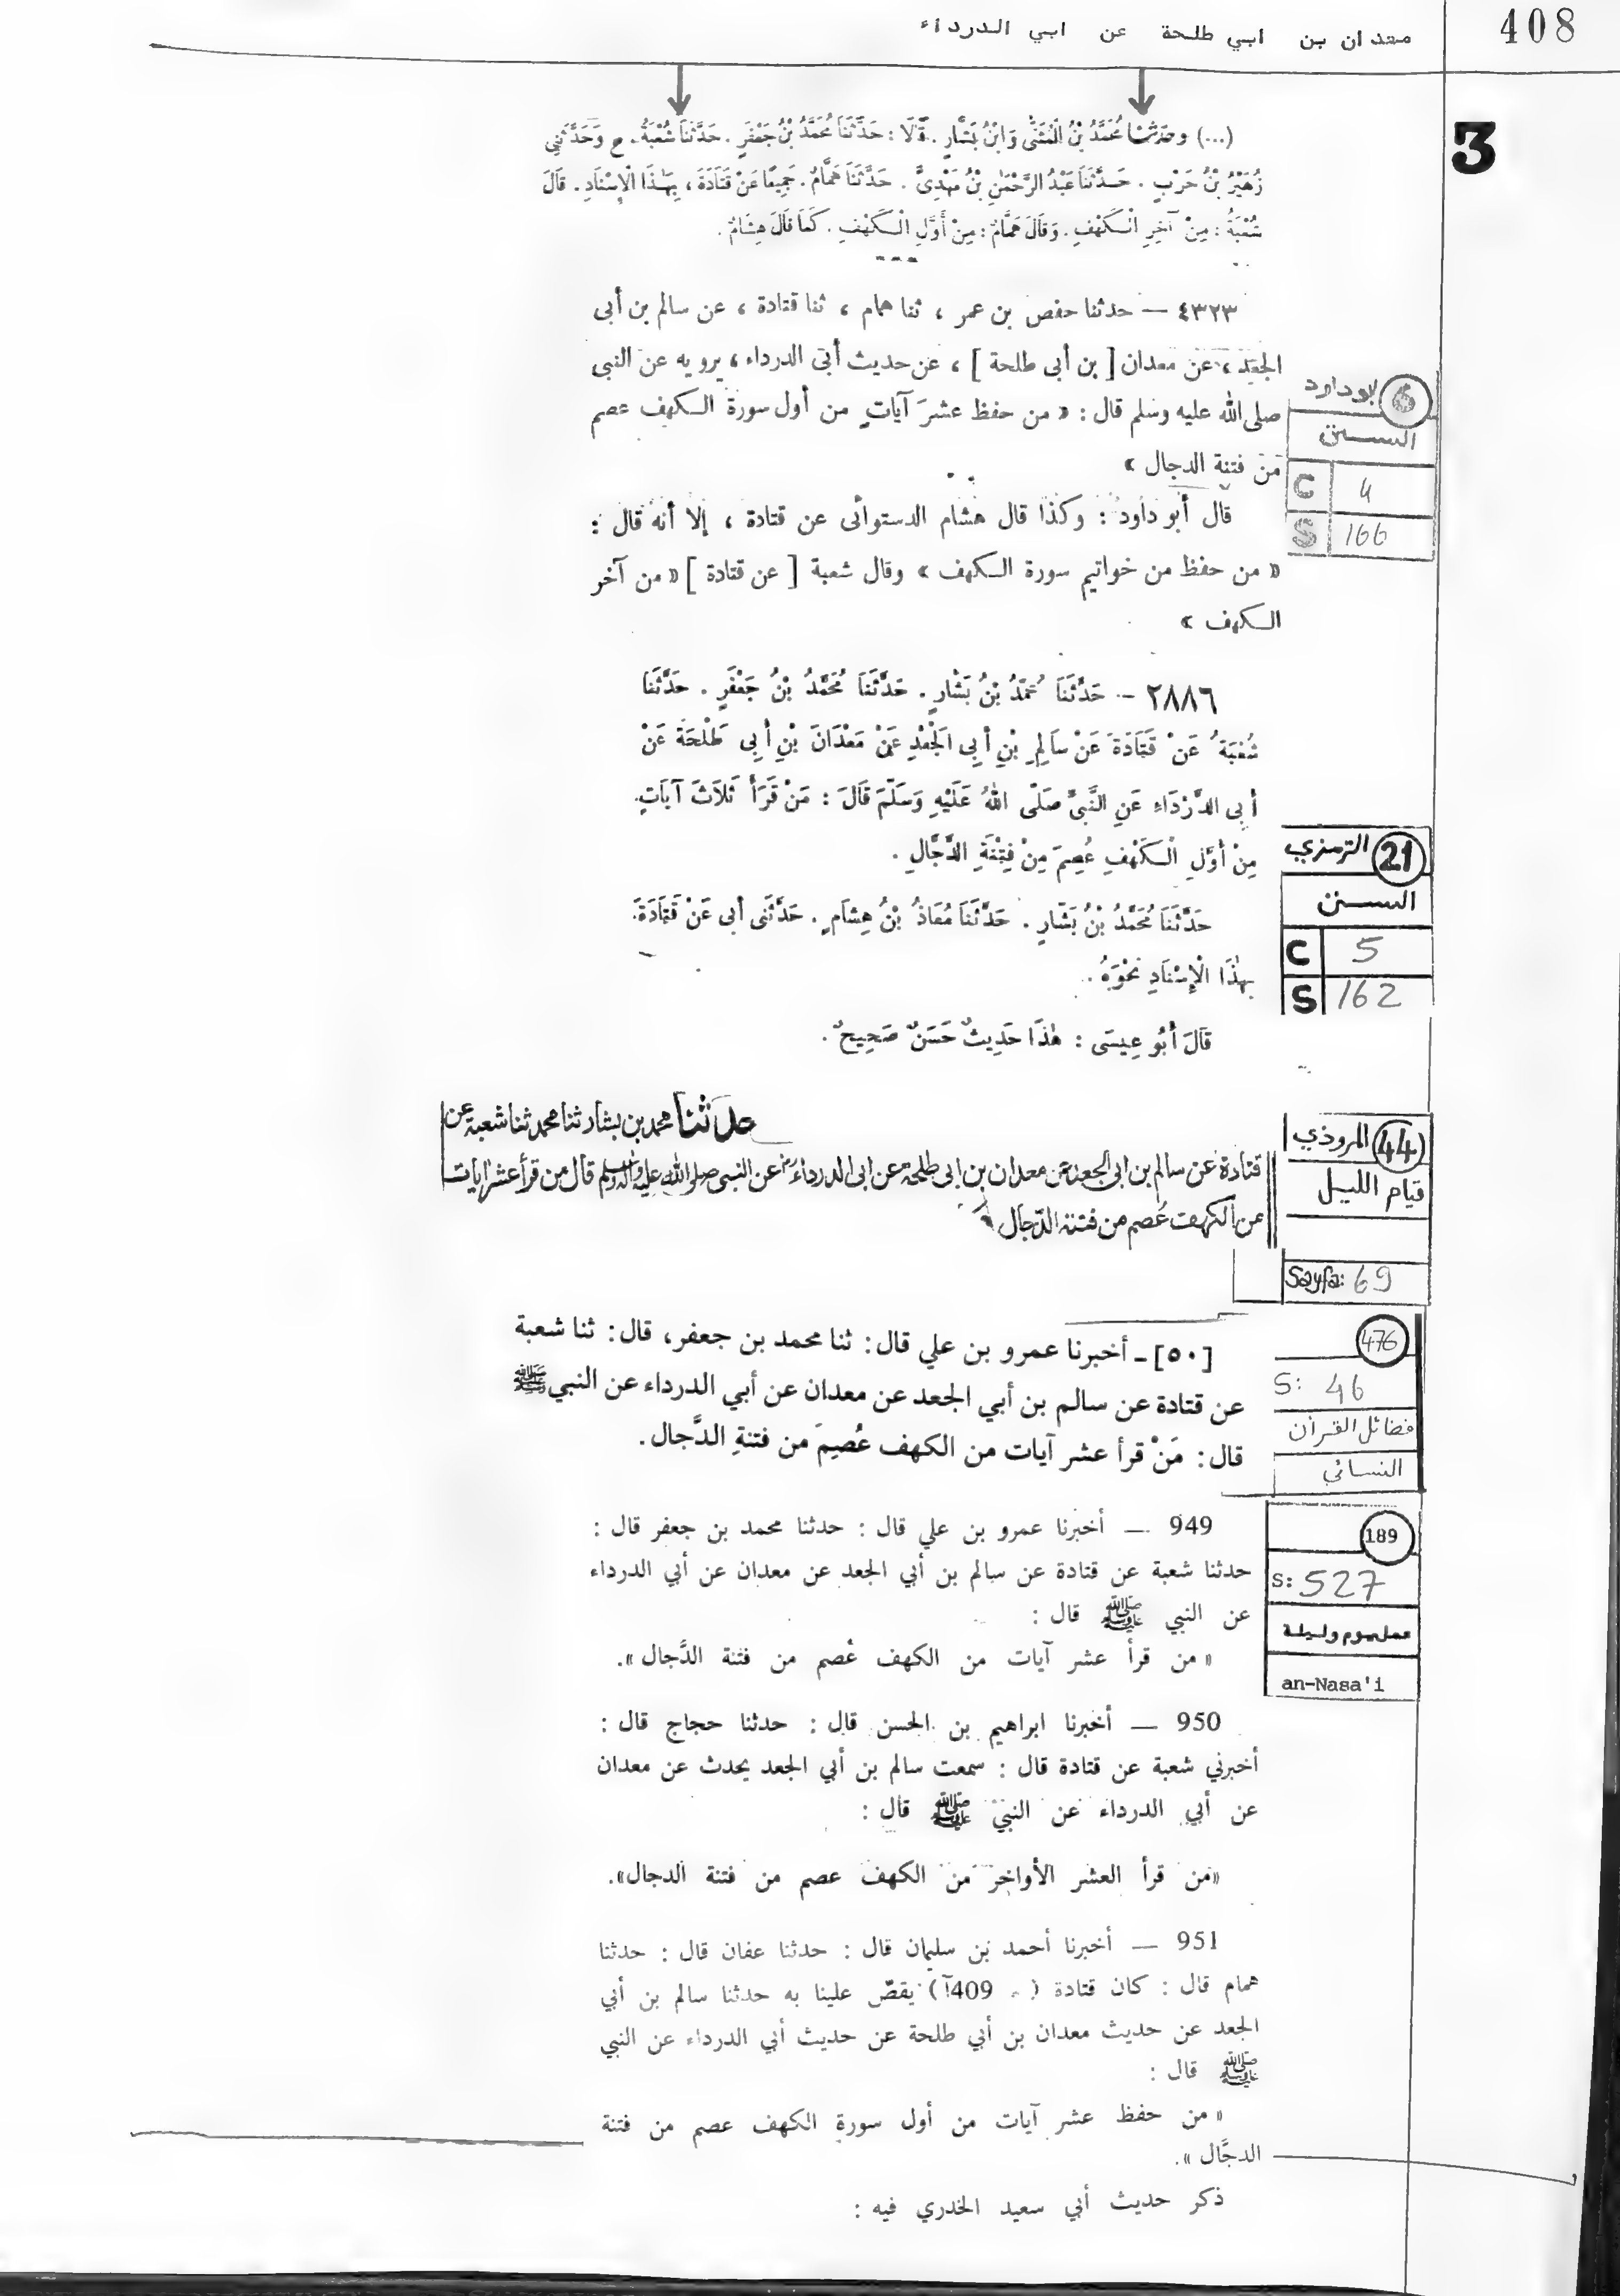 408
معدان بن ابي طلحة عن ابي الدرداء
3
(...) وحَدَّثَنَا مُحَمَّدُ بْنُ الْمُثَنَّى وَابْنُ بَشَّارٍ . قَالَا : حَدَّثَنَا مُحَمَّدُ بْنُ جَعْفَرٍ . حَدَّثَنَا شُعْبَةُ . ح وَحَدَّثَنِي
زُهَيْرُ بْنُ حَرْبٍ . حَدَّثَنَا عَبْدُ الرَّحْمَٰنِ بْنُ مَهْدِيٍّ . حَدَّثَنَا هَمَّامٌ . جَمِيعًا عَنْ قَتَادَةَ ، بِهَٰذَا الْإِسْنَادِ . قَالَ
شُعْبَةُ : مِنْ آخِرِ الْكَهْفِ . وَقَالَ هَمَّامٌ : مِنْ أَوَّلِ الْكَهْفِ . كَمَا قَالَ هِشَامٌ .
٤٣٢٣ — حدثنا حفص بن عمر ، ثنا همام ، ثنا قتادة ، عن سالم بن أبى
الجعد ، عن معدان [ بن أبى طلحة ] ، عن حديث أبى الدرداء ، يرويه عن النبى
صلى الله عليه وسلم قال : « من حفظ عشرَ آياتٍ من أول سورة الكهف عصم
من فتنة الدجال »
قال أبو داود : وكذا قال هشام الدستوائى عن قتادة ، إلا أنه قال :
« من حفظ من خواتيم سورة الكهف » وقال شعبة [ عن قتادة ] « من آخر
الكهف »
6 ابوداود
السنن
C 4
S 166
٢٨٨٦ — حَدَّثَنَا مُحَمَّدُ بْنُ بَشَّارٍ . حَدَّثَنَا مُحَمَّدُ بْنُ جَعْفَرٍ . حَدَّثَنَا
شُعْبَةُ عَنْ قَتَادَةَ عَنْ سَالِمِ بْنِ أَبِي الْجَعْدِ عَنْ مَعْدَانَ بْنِ أَبِي طَلْحَةَ عَنْ
أَبِي الدَّرْدَاءِ عَنِ النَّبِيِّ صَلَّى اللهُ عَلَيْهِ وَسَلَّمَ قَالَ : مَنْ قَرَأَ ثَلَاثَ آيَاتٍ
مِنْ أَوَّلِ الْكَهْفِ عُصِمَ مِنْ فِتْنَةِ الدَّجَّالِ .
حَدَّثَنَا مُحَمَّدُ بْنُ بَشَّارٍ . حَدَّثَنَا مُعَاذُ بْنُ هِشَامٍ . حَدَّثَنِى أَبِى عَنْ قَتَادَةَ
بِهٰذَا الْإِسْنَادِ نَحْوَهُ .
قَالَ أَبُو عِيسَى : هٰذَا حَدِيثٌ حَسَنٌ صَحِيحٌ .
21 الترمذي
السنن
C 5
S 162
حدثنا محمد بن بشار ثنا محمد ثنا شعبة عن
قتادة عن سالم بن ابى الجعد عن معدان بن ابى طلحة عن ابى الدرداء رض عن النبى صلى الله عليه وآله وسلم قال من قرأ عشر ايات
من الكهف عُصم من فتنة الدّجال
44 المروذي
قيام الليل
Sayfa: 69
[٥٠] ـ أخبرنا عمرو بن علي قال : ثنا محمد بن جعفر، قال : ثنا شعبة
عن قتادة عن سالم بن أبي الجعد عن معدان عن أبي الدرداء عن النبي ﷺ
قال : مَنْ قرأ عشر آيات من الكهف عُصِمَ من فتنةِ الدَّجال .
476
S: 46
فضائل القرآن
النسائي
949 — أخبرنا عمرو بن علي قال : حدثنا محمد بن جعفر قال :
حدثنا شعبة عن قتادة عن سالم بن أبي الجعد عن معدان عن أبي الدرداء
عن النبي ﷺ قال :
« من قرأ عشر آيات من الكهف عُصم من فتنة الدَّجال ».
189
S: 527
عمل يوم وليلة
an-Nasa'i
950 — أخبرنا ابراهيم بن الحسن قال : حدثنا حجاج قال :
أخبرني شعبة عن قتادة قال : سمعت سالم بن أبي الجعد يحدث عن معدان
عن أبي الدرداء عن النبي ﷺ قال :
«من قرأ العشر الأواخر من الكهف عصم من فتنة الدجال».
951 — أخبرنا أحمد بن سليمان قال : حدثنا عفان قال : حدثنا
همام قال : كان قتادة ( 409آ ) يقصّ علينا به حدثنا سالم بن أبي
الجعد عن حديث معدان بن أبي طلحة عن حديث أبي الدرداء عن النبي
ﷺ قال :
« من حفظ عشر آيات من أول سورة الكهف عصم من فتنة
الدجَّال ».
ذكر حديث أبي سعيد الخدري فيه :